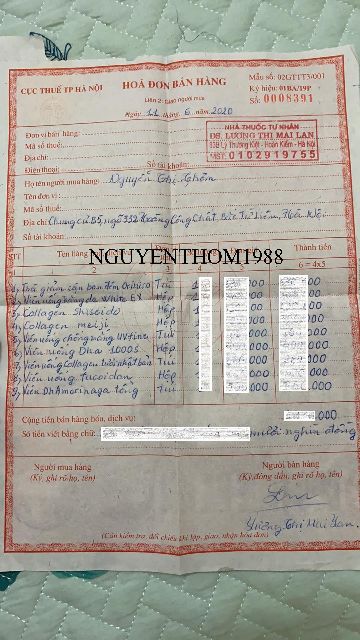 CỤC THUẾ TP HÀ NỘI
HOÁ ĐƠN BÁN HÀNG
Liên 2: Giao người mua
Ngày 11 tháng 6 năm 2020
Mẫu số: 02GTTT3/001
Ký hiệu: 01BA/19P
Số: 0008391
Đơn vị bán hàng:
Mã số thuế:
Địa chỉ:
Điện thoại: Số tài khoản:
NHÀ THUỐC TƯ NHÂN
ĐS. LƯƠNG THỊ MAI LAN
83B Lý Thường Kiệt - Hoàn Kiếm - Hà Nội
MST: 0102919755
Họ tên người mua hàng: Nguyễn Thị Thơm
Tên đơn vị:
Mã số thuế:
Địa chỉ: Chung cư B5, ngõ 332 Hoàng Công Chất, Bắc Từ Liêm, Hà Nội
Số tài khoản:
NGUYENTHOM1988
TT Tên hàng Thành tiền
2 3 4 5 6 = 4x5
1) Trà giảm cân ban đêm Orihiro Túi
2) Viên uống trắng da White EX Hộp
3) Collagen Shiseido Hộp
4) Collagen meiji Hộp
5) Viên uống chống nắng UV fine Túi
6) Viên uống DHA 1000S Hộp
7) Viên uống Collagen tươi nhật bản Túi
8) Viên uống fucoidan Hộp
9) Viên DHA morinaga tổng Túi
Cộng tiền bán hàng hóa, dịch vụ: 000
Số tiền viết bằng chữ: mươi nghìn đồng
Người mua hàng
(Ký, ghi rõ họ, tên)
Người bán hàng
(Ký, đóng dấu, ghi rõ họ, tên)
Lương Thị Mai Lan
(Cần kiểm tra, đối chiếu khi lập, giao, nhận hóa đơn)